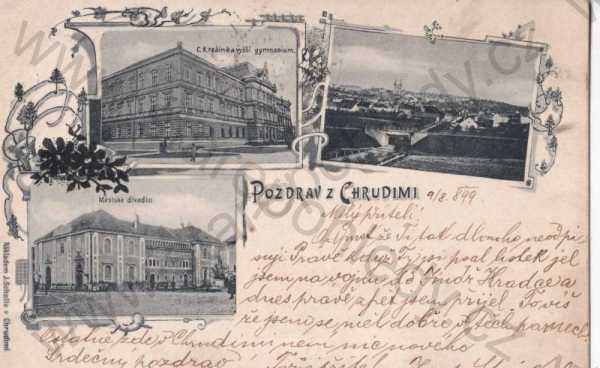 C. K. reálné a vyšší gymnasium.
Městské divadlo.
POZDRAV Z CHRUDIMI 9/8. 899
Milý příteli!
že Ti tak dlouho neodpi-
suji Právě když Ty jsi psal lístek jel
jsem na vojnu do Jindř. Hradce a
dnes právě jsem přijel To víš
že jsem se měl dobře
Ostatně zde v Chrudimi není nic nového
Srdečný pozdrav
Nákladem J. Schulle v Chrudimi